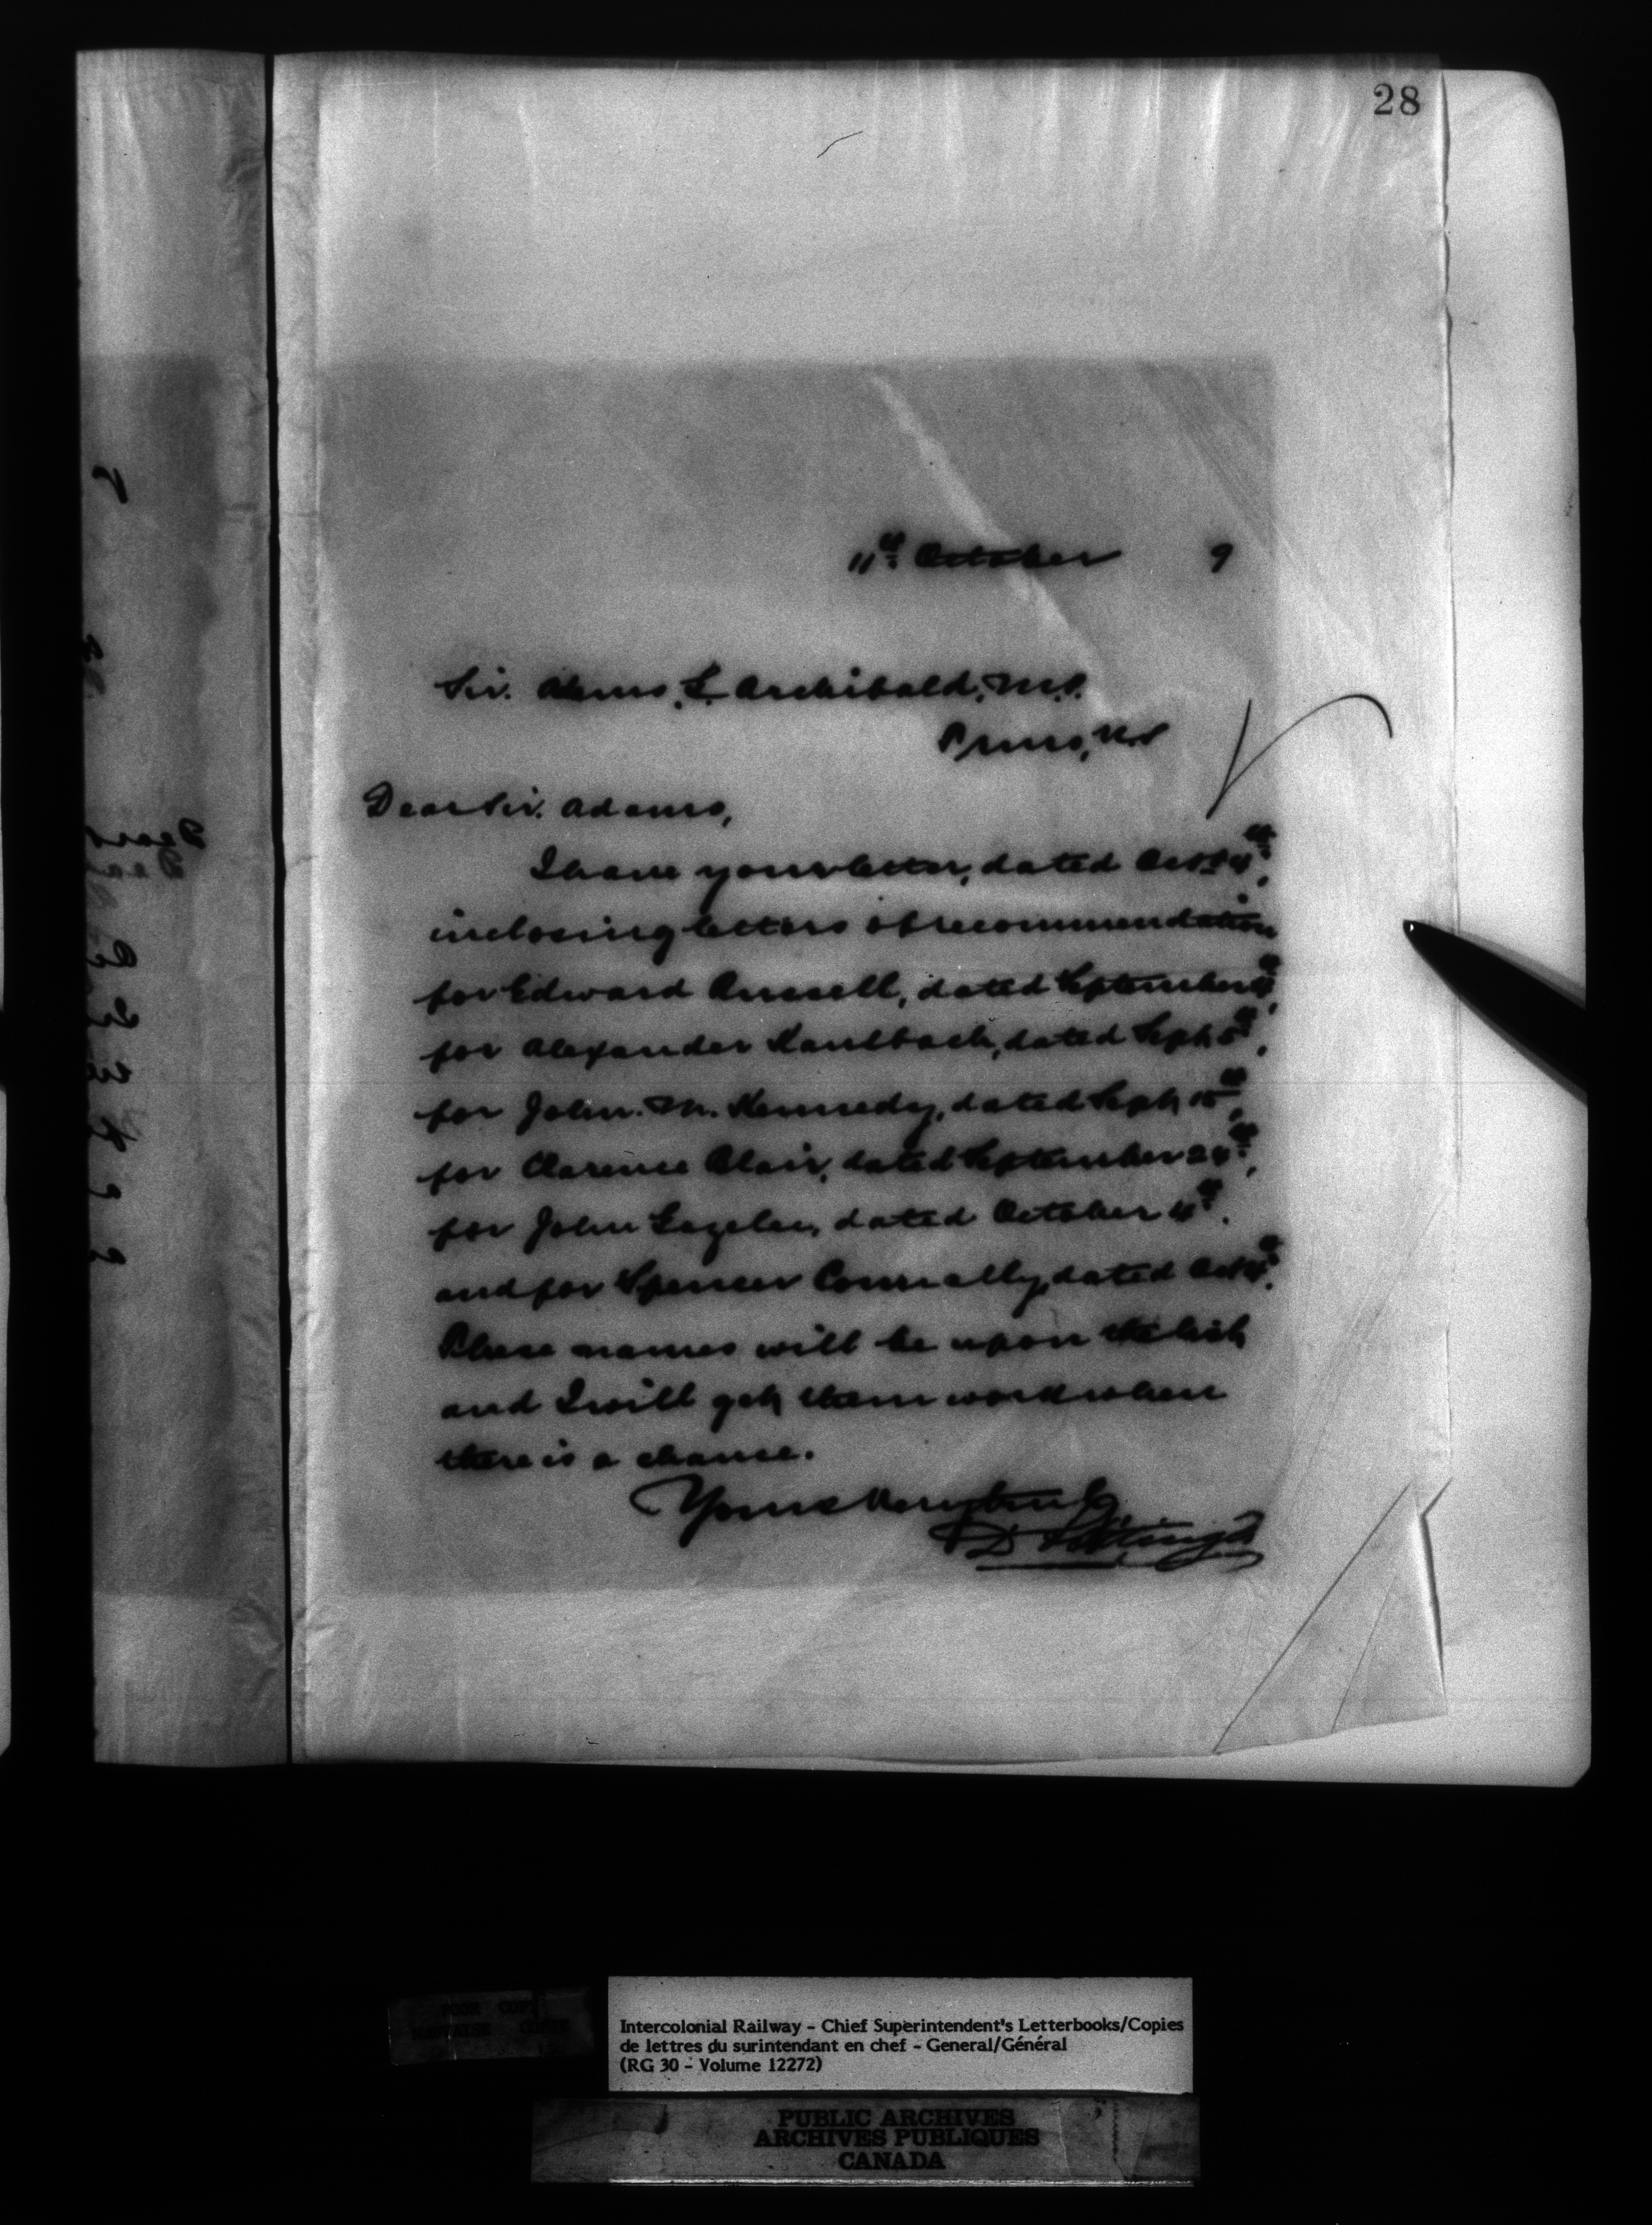 28
11th October 9
Sir. Adams. G. Archibald, M.P.
Truro, N.S
Dear Sir. Adams,
I have your letter, dated Oct. 4th,
inclosing letters of recommendation
for Edward Russell, dated September
for Alexander Kaulback, dated Sept. 5th,
for John. M. Kennedy, dated Sept. 15th,
for Clarence Blair, dated September
for John dated October 4th.
and for Spencer Connally, dated Oct.
These names will be upon the list,
and I will get them work when
there is a chance.
Yours very truly
D Pottinger
POOR COPY
Intercolonial Railway - Chief Superintendent's Letterbooks/Copies
de lettres du surintendant en chef - General/Général
(RG 30 - Volume 12272)
PUBLIC ARCHIVES
ARCHIVES PUBLIQUES
CANADA